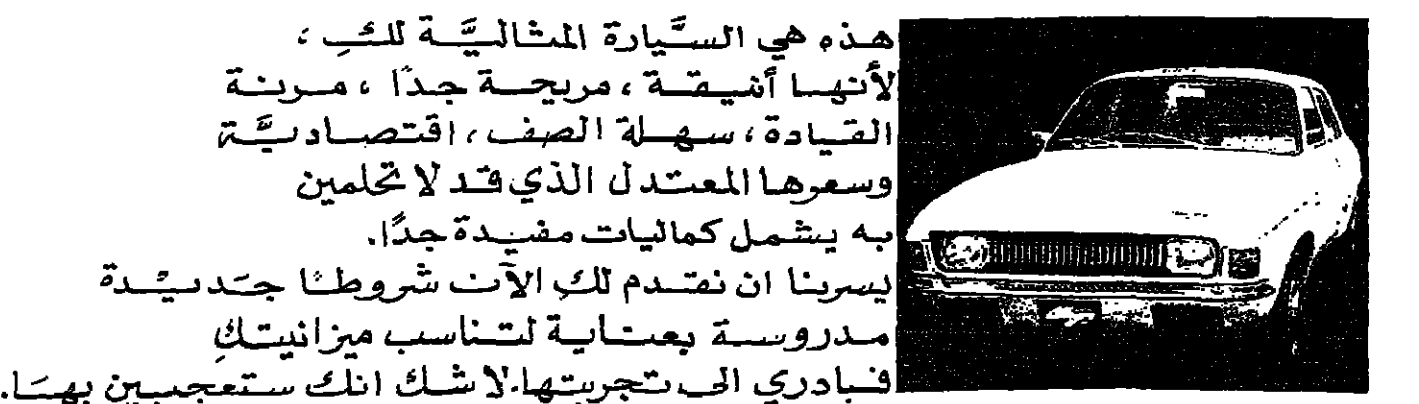 هذه هي السيَّارة المثاليَّة لكِ ،
لأنها أنيقة ، مريحة جدًا ، مرنة
القيادة ، سهلة الصف ، اقتصاديَّة
وسعرها المعتدل الذي قد لا تحلمين
به يشمل كماليات مفيدة جدًا.
يسرنا ان نقدم لكِ الآن شروطًا جَديْدة
مدروسة بعناية لتناسب ميزانيتكِ
فبادري الى تجربتها. لا شك انك ستعجبين بهَا.